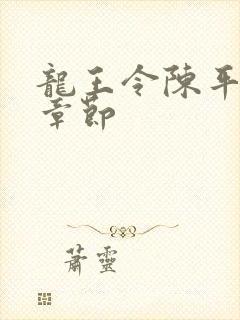 龍王令陳平
章節
蕭靈